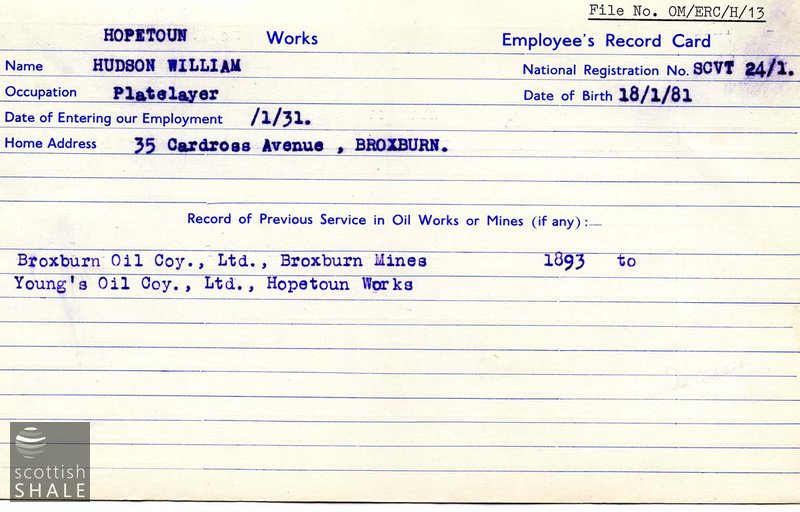 File No. OM/ERC/H/13
HOPETOUN Works Employee's Record Card
Name HUDSON WILLIAM National Registration No. SCVT 24/1.
Occupation Platelayer Date of Birth 18/1/81
Date of Entering our Employment /1/31.
Home Address 35 Cardross Avenue , BROXBURN.
Record of Previous Service in Oil Works or Mines (if any):—
Broxburn Oil Coy., Ltd., Broxburn Mines 1893 to
Young's Oil Coy., Ltd., Hopetoun Works
scottish
SHALE